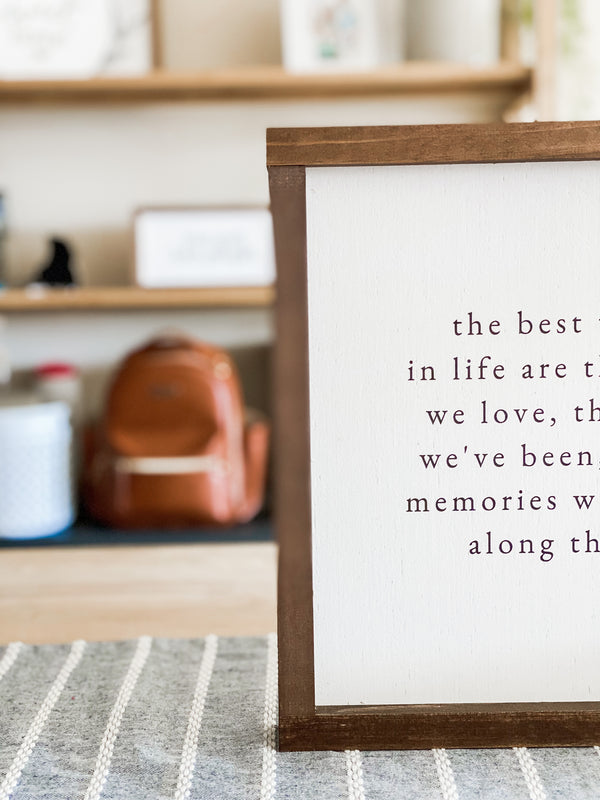 the best
in life are th
we love, th
we've been,
memories w
along th